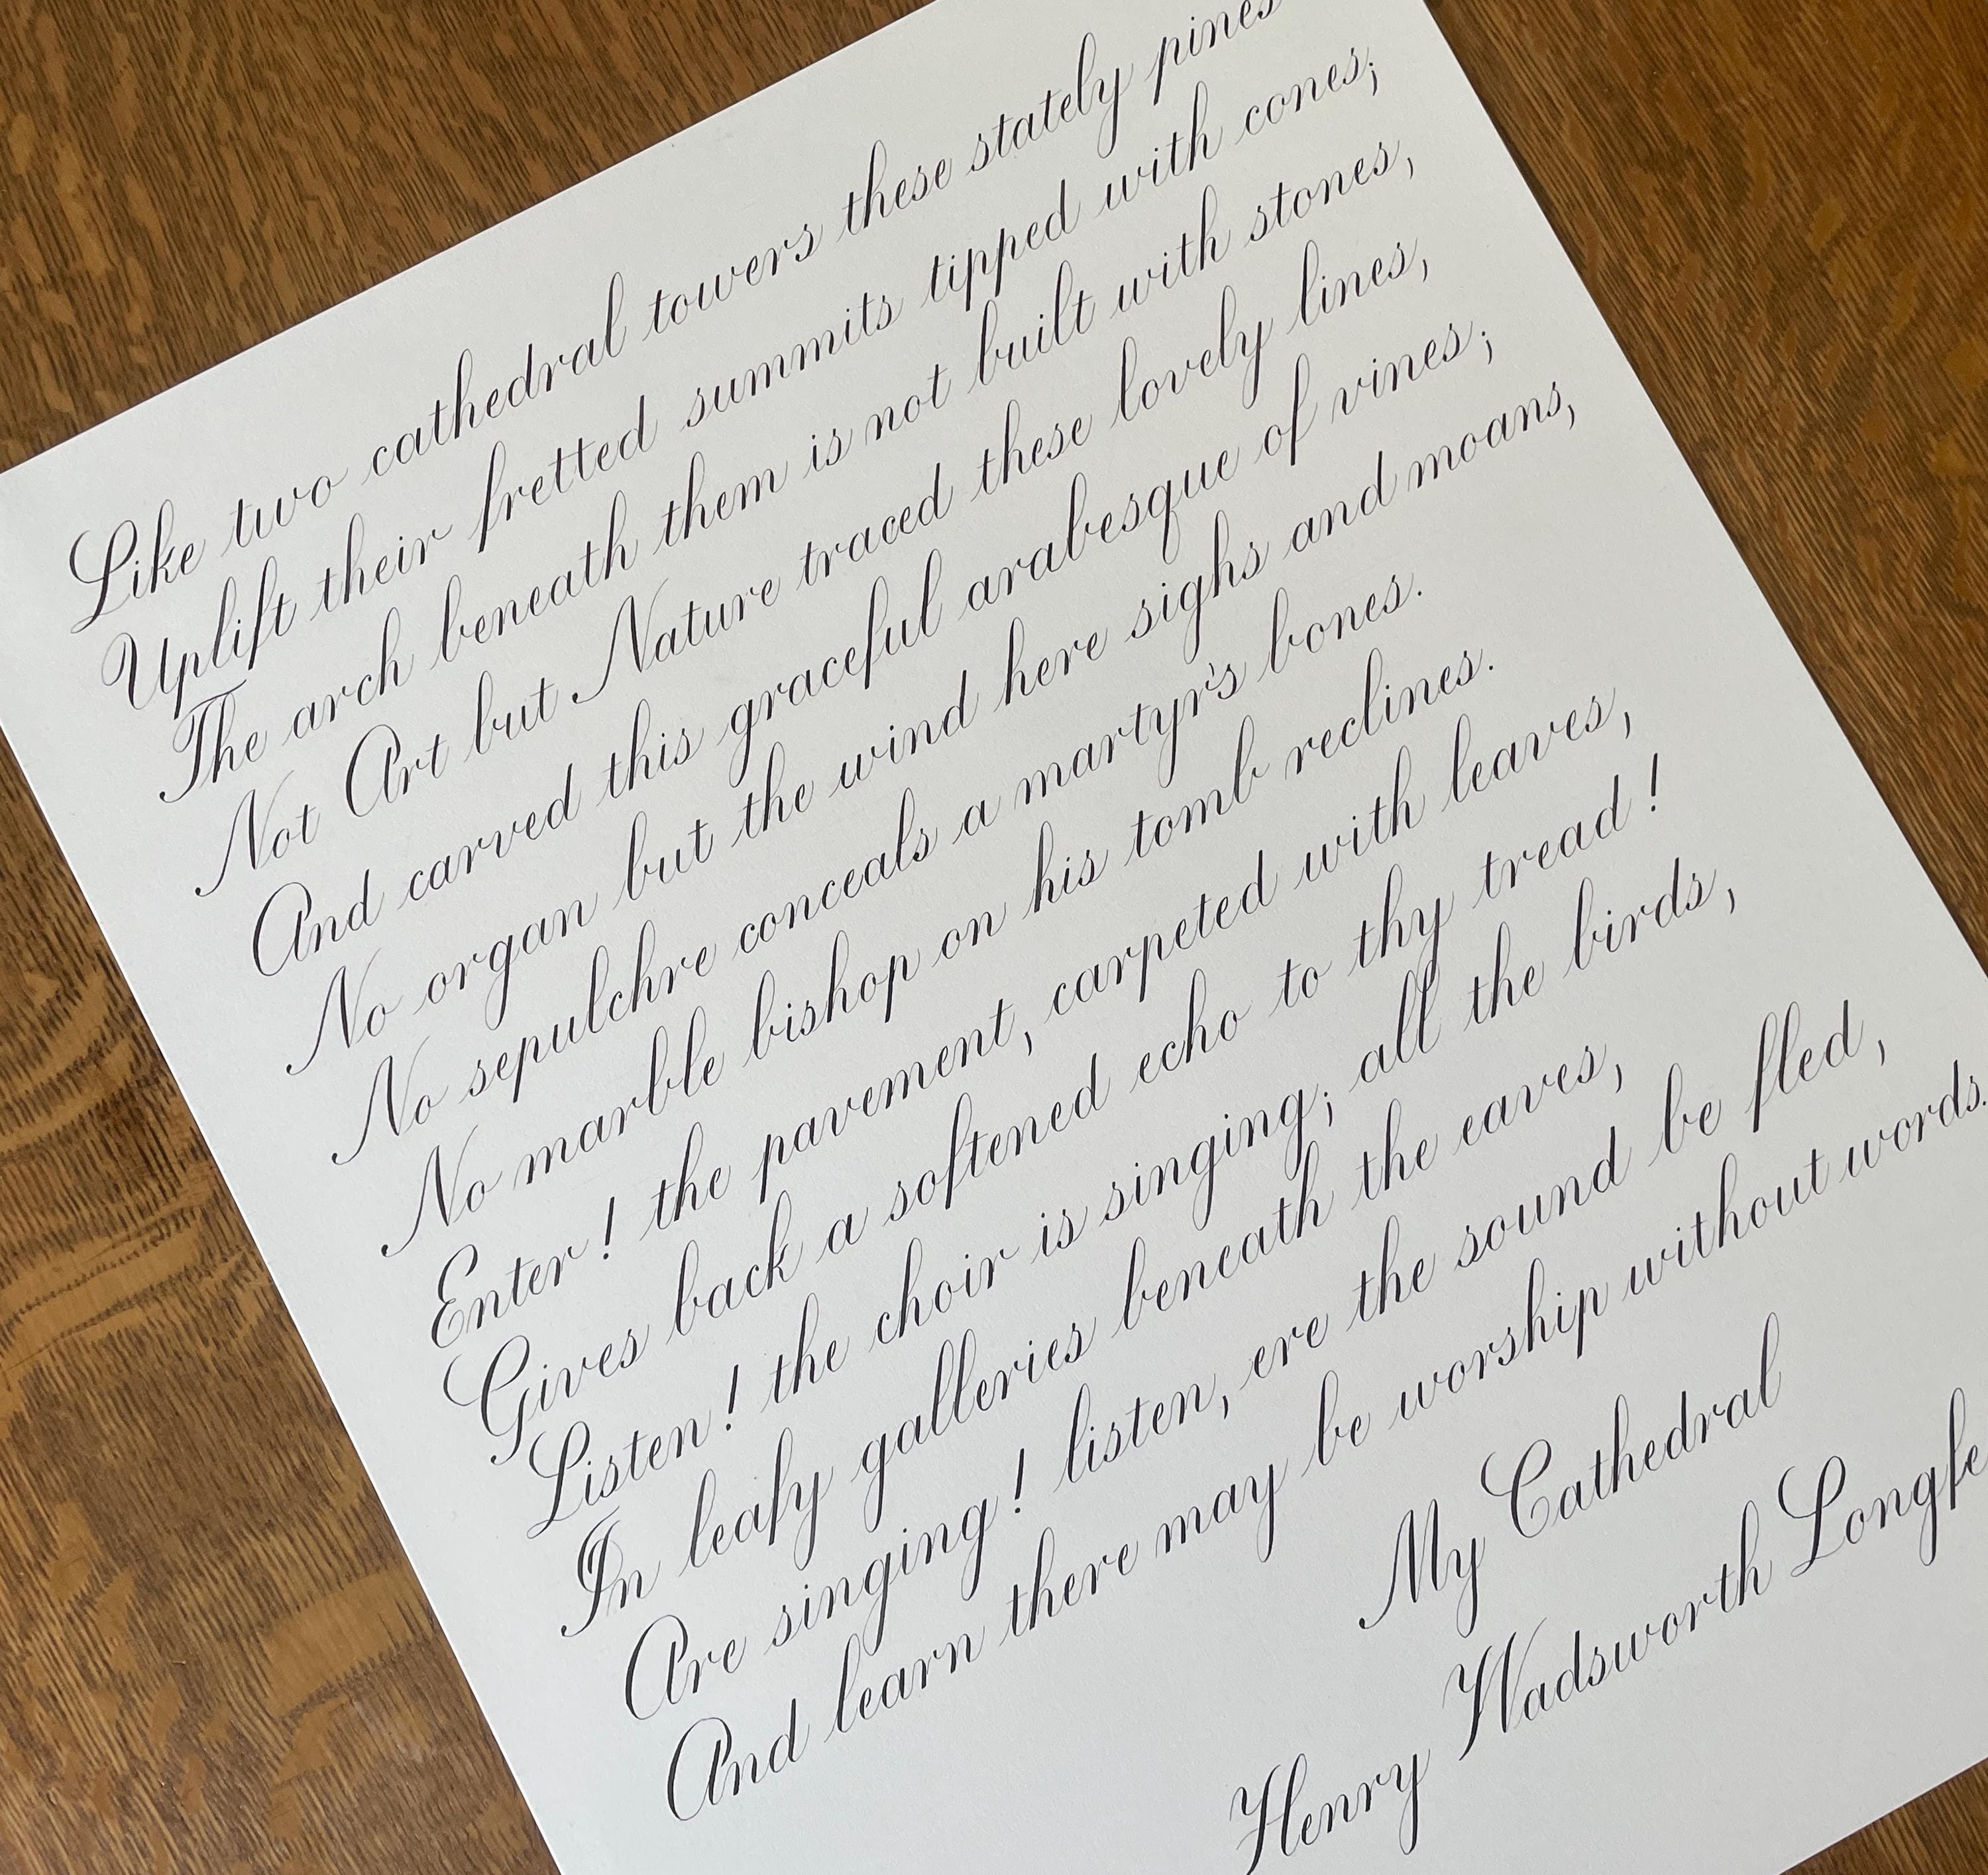 Like two cathedral towers these stately pines
Uplift their fretted summits tipped with cones;
The arch beneath them is not built with stones,
Not Art but Nature traced these lovely lines,
And carved this graceful arabesque of vines;
No organ but the wind here sighs and moans,
No sepulchre conceals a martyr's bones.
No marble bishop on his tomb reclines.
Enter! the pavement, carpeted with leaves,
Gives back a softened echo to thy tread!
Listen! the choir is singing; all the birds,
In leafy galleries beneath the eaves,
Are singing! listen, ere the sound be fled,
And learn there may be worship without words.
My Cathedral
Henry Wadsworth Longfe